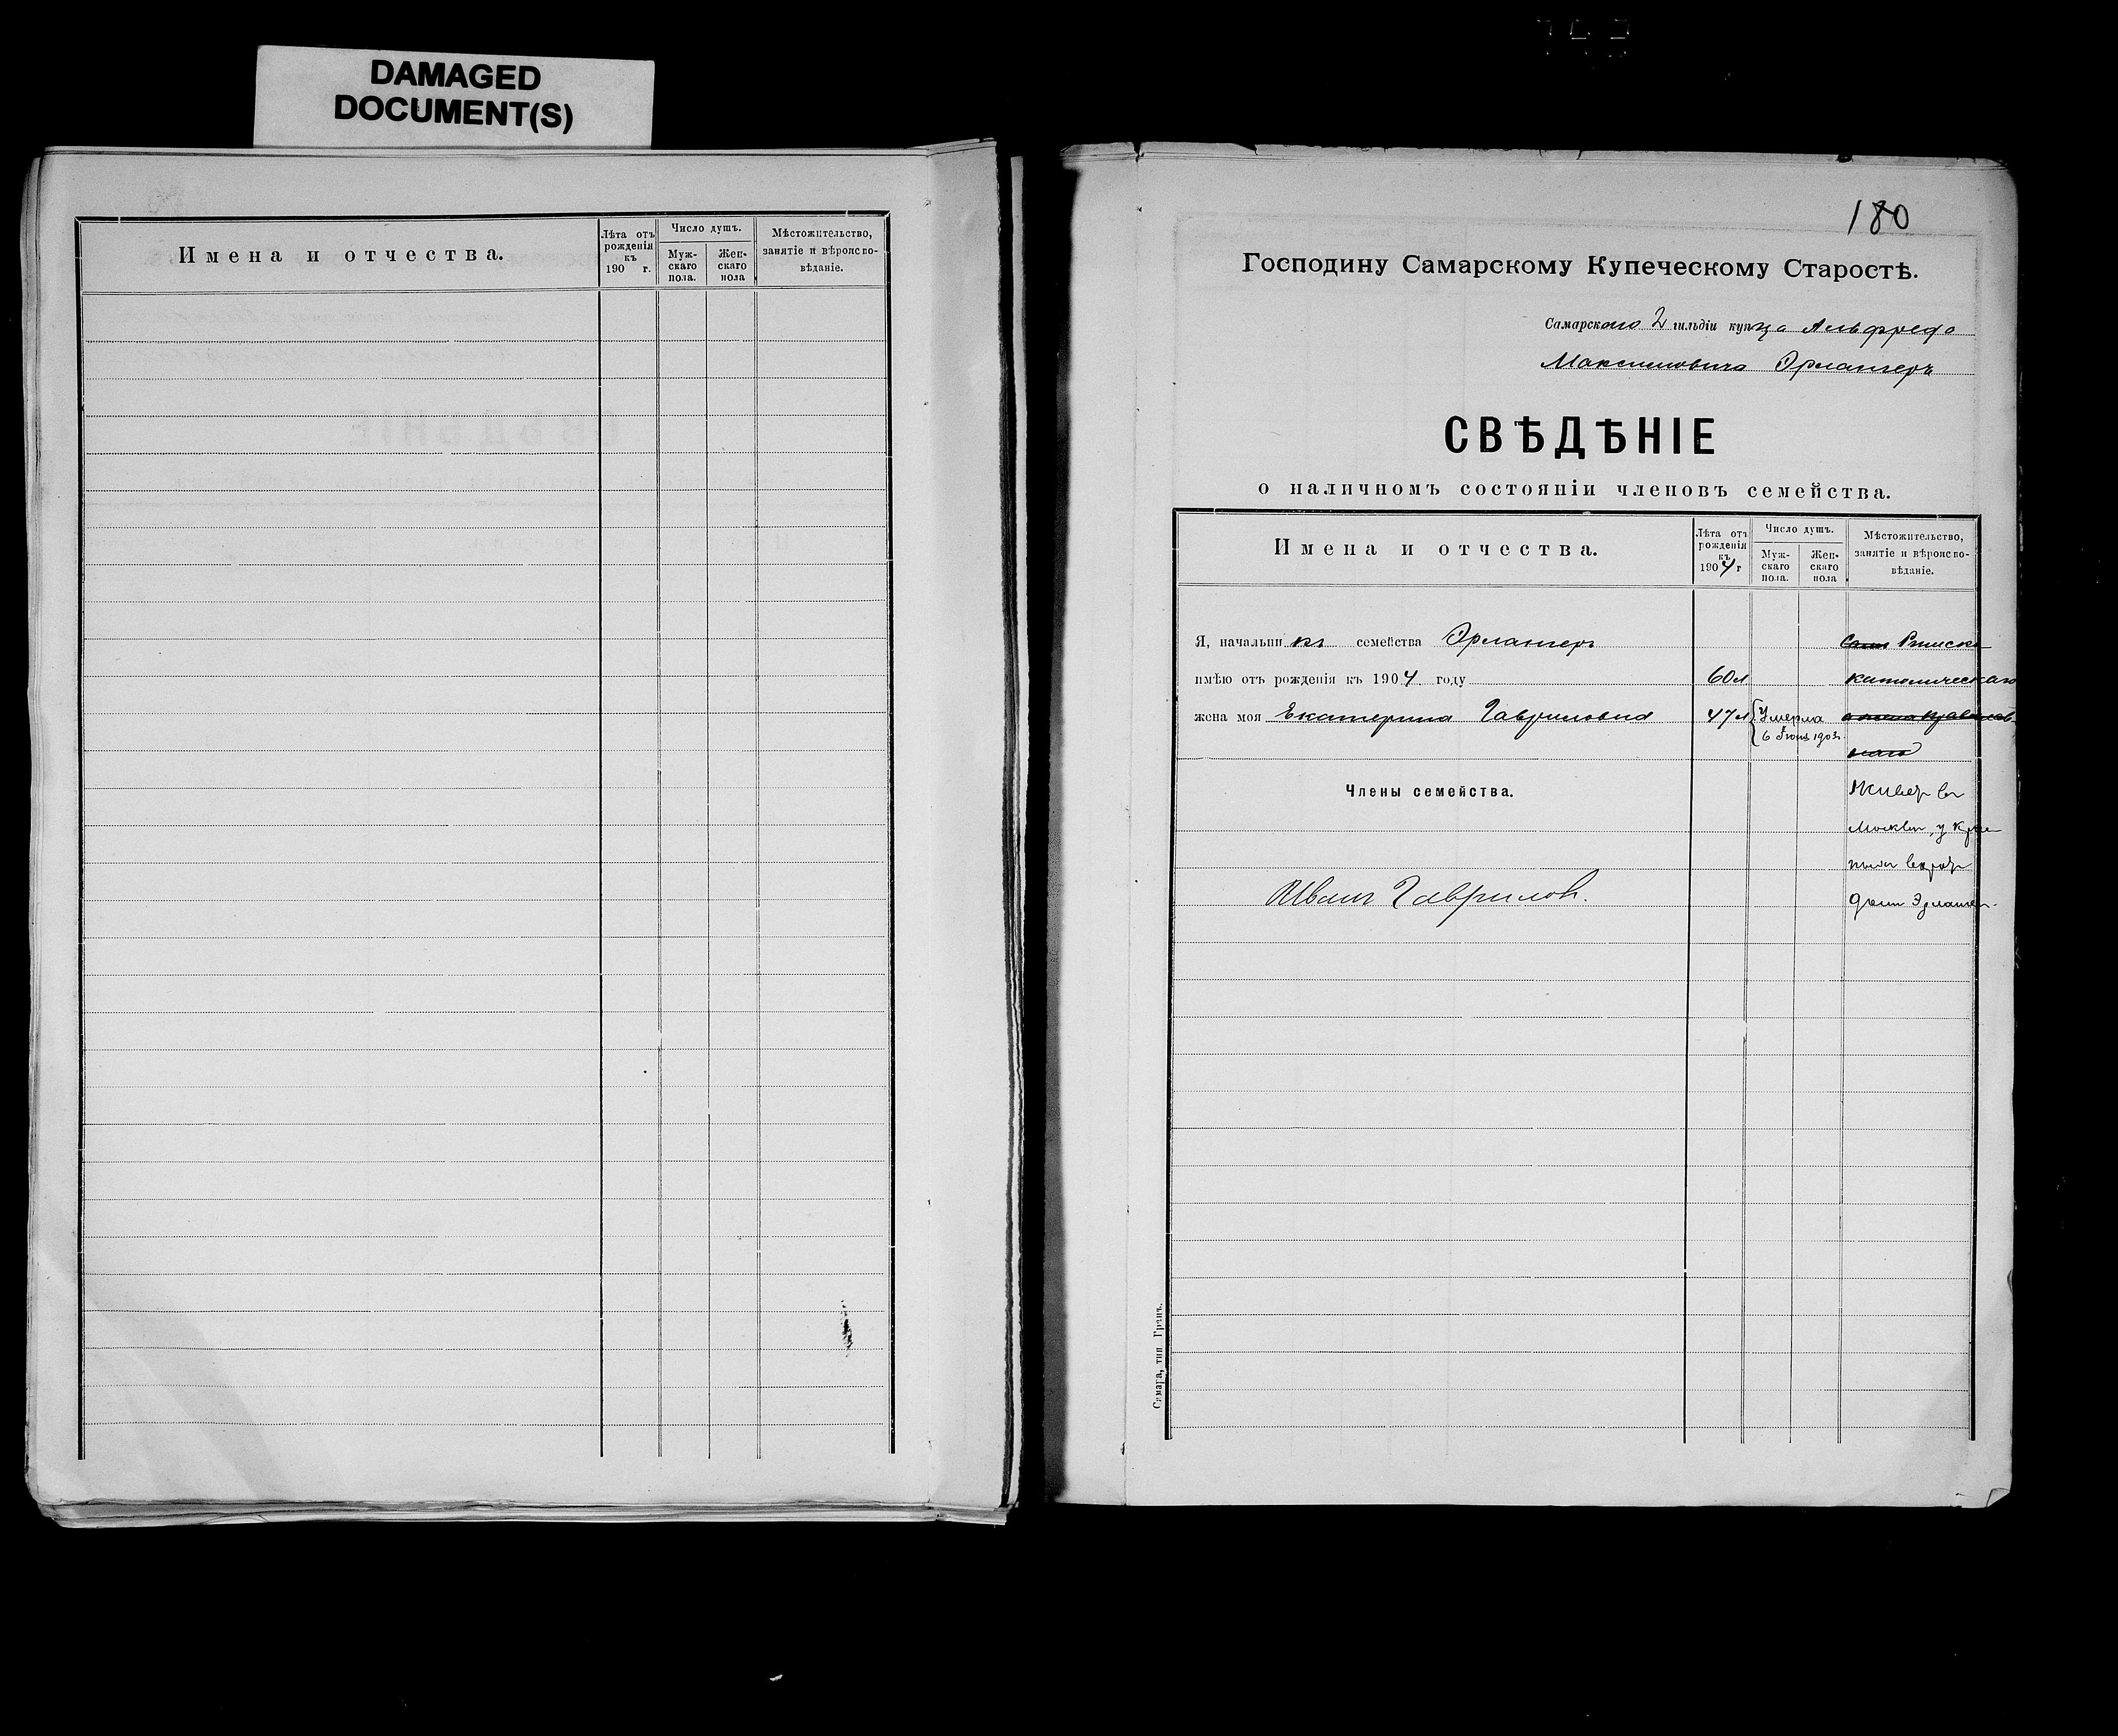 DAMAGED
DOCUMENT(S)
Имена и отчества.
Лѣта отъ рожденія къ 190 г.
Число душъ.
Муж-скаго пола.
Жен-скаго пола
Мѣстожительство, занятіе и вѣроиспо-вѣданіе.
180
Господину Самарскому Купеческому Старостѣ.
Самарскаго 2 гильдіи купца Альфреда
Максимовича Эрлангеръ
СВѢДѢНІЕ
о наличномъ состояніи членовъ семейства.
Имена и отчества.
Лѣта отъ рожденія къ 1904 г
Число душъ.
Муж-скаго пола.
Жен-скаго пола
Мѣстожительство, занятіе и вѣроиспо-вѣданіе.
Я, начальникъ семейства Эрлангеръ Римско
имѣю отъ рожденія къ 1904 году 60 л католическаго
жена моя Екатерина Гавриловна 47 л Умерла
6 Іюня 1903 г.
Члены семейства.
Живетъ въ
Москвѣ, у
Иванъ Гавриловъ.
Самара, тип. Гранъ.